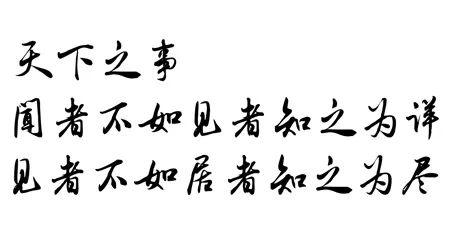 天下之事
闻者不如见者知之为详
见者不如居者知之为尽